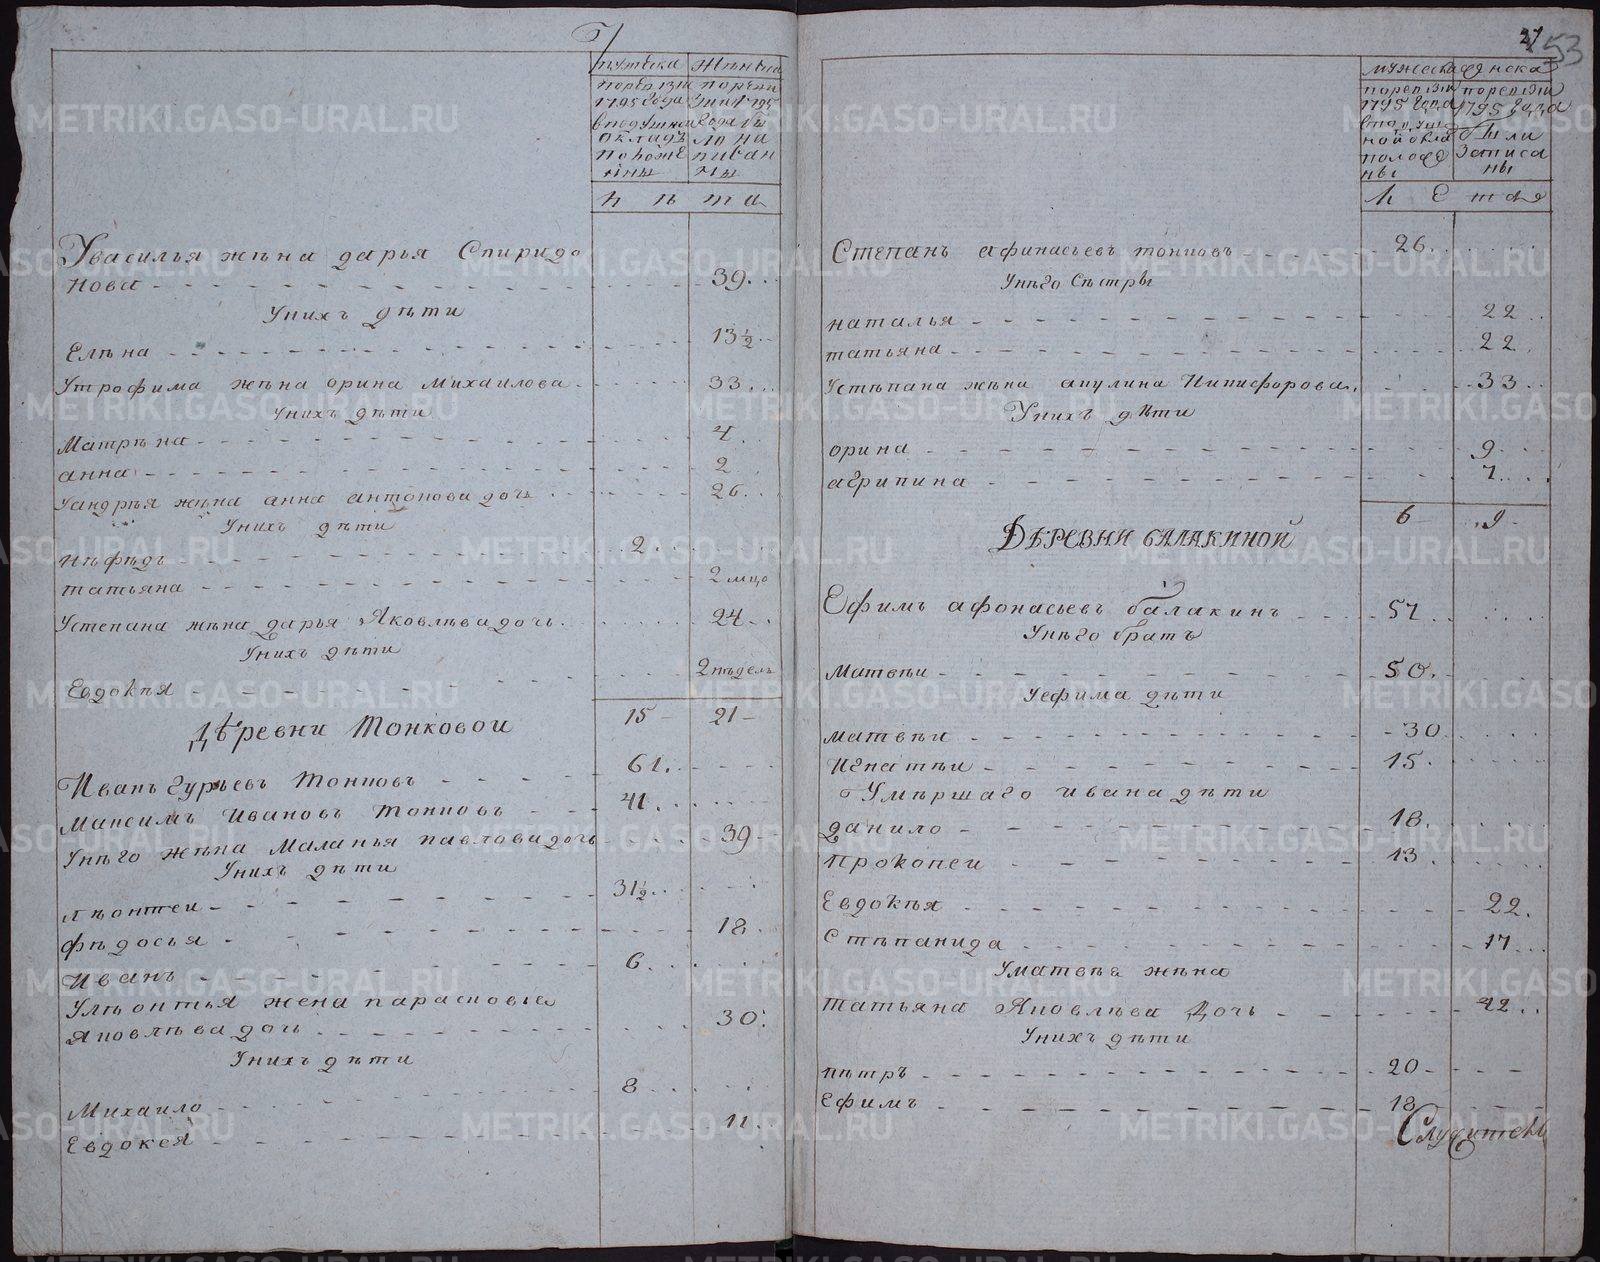 мужеска
женска
поревизи
1795 года
в подушном
окладе
положе
ны
поревизи
1795
года бы
ло на
писан
ны
л е т а
У василья жѣна дарья Спиридо
нова 39
У нихъ дѣти
Елѣна 13½
У трофима жѣна орина Михаилова 33
У нихъ дѣти
Матрѣна 4
анна 2
У андрѣя жѣна анна антонова дочь 26
У нихъ дѣти
нѣфѣдъ 2
татьяна 2 мцо
У степана жѣна дарья Яковлѣва дочь 24
У нихъ дѣти
Евдокѣя 2 нѣдель
15 21
Дѣревни Тонковои
Иванъ гурьевъ Тонковъ 61
Максимъ Ивановъ Тонковъ 41
У нѣго жѣна Маланья павлова дочь 39
У нихъ дѣти
лѣонтеи 31½
фѣдосья 18
Иванъ 6
У лѣонтья жена парасковья
яковлѣва дочь 30
У нихъ дѣти
Михаило 8
Евдокея 11
27
53
мужеска
женска
поревизи
1795 года
в подуш
ной окла
положе
ны
поревизи
1795 года
были
записа
ны
л е т а
Степанъ афинасьевъ тонковъ 26
У нѣго Сѣстры
наталья 22
татьяна 22
У стѣпана жѣна акулина Никифорова 33
У нихъ дѣти
орина 9
агрипина 7
6 9
Дѣревни балакиной
Ефимъ афонасьевъ балакинъ 57
У нѣго братъ
Матвѣи 50
У ефима дѣти
матвѣи 30
Игнатѣи 15
Умѣршаго ивана дѣти
данило 18
прокопеи 13
Евдокѣя 22
Стѣпанида 17
У матвѣя жѣна
татьяна Яковлѣва дочь 42
У нихъ дѣти
пѣтръ 20
Ефимъ 18
METRIKI.GASO-URAL.RU